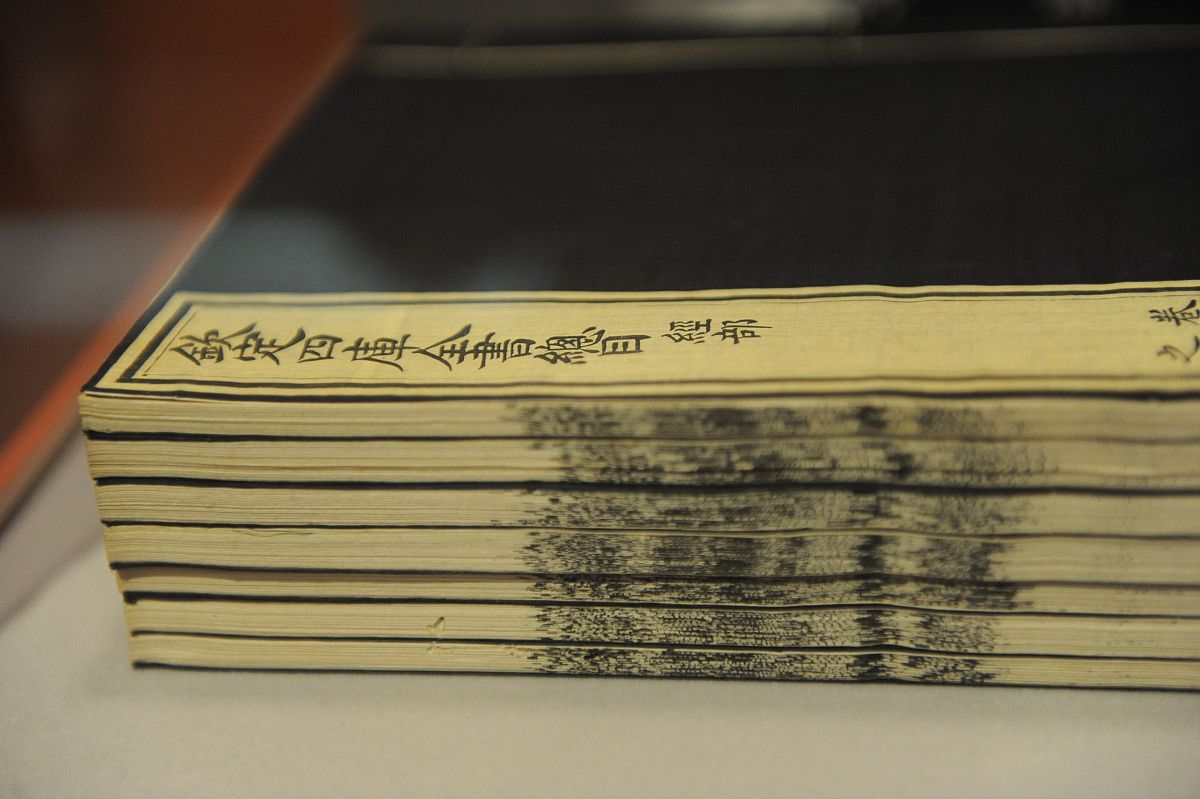 欽定四庫全書總目 經部
卷
之